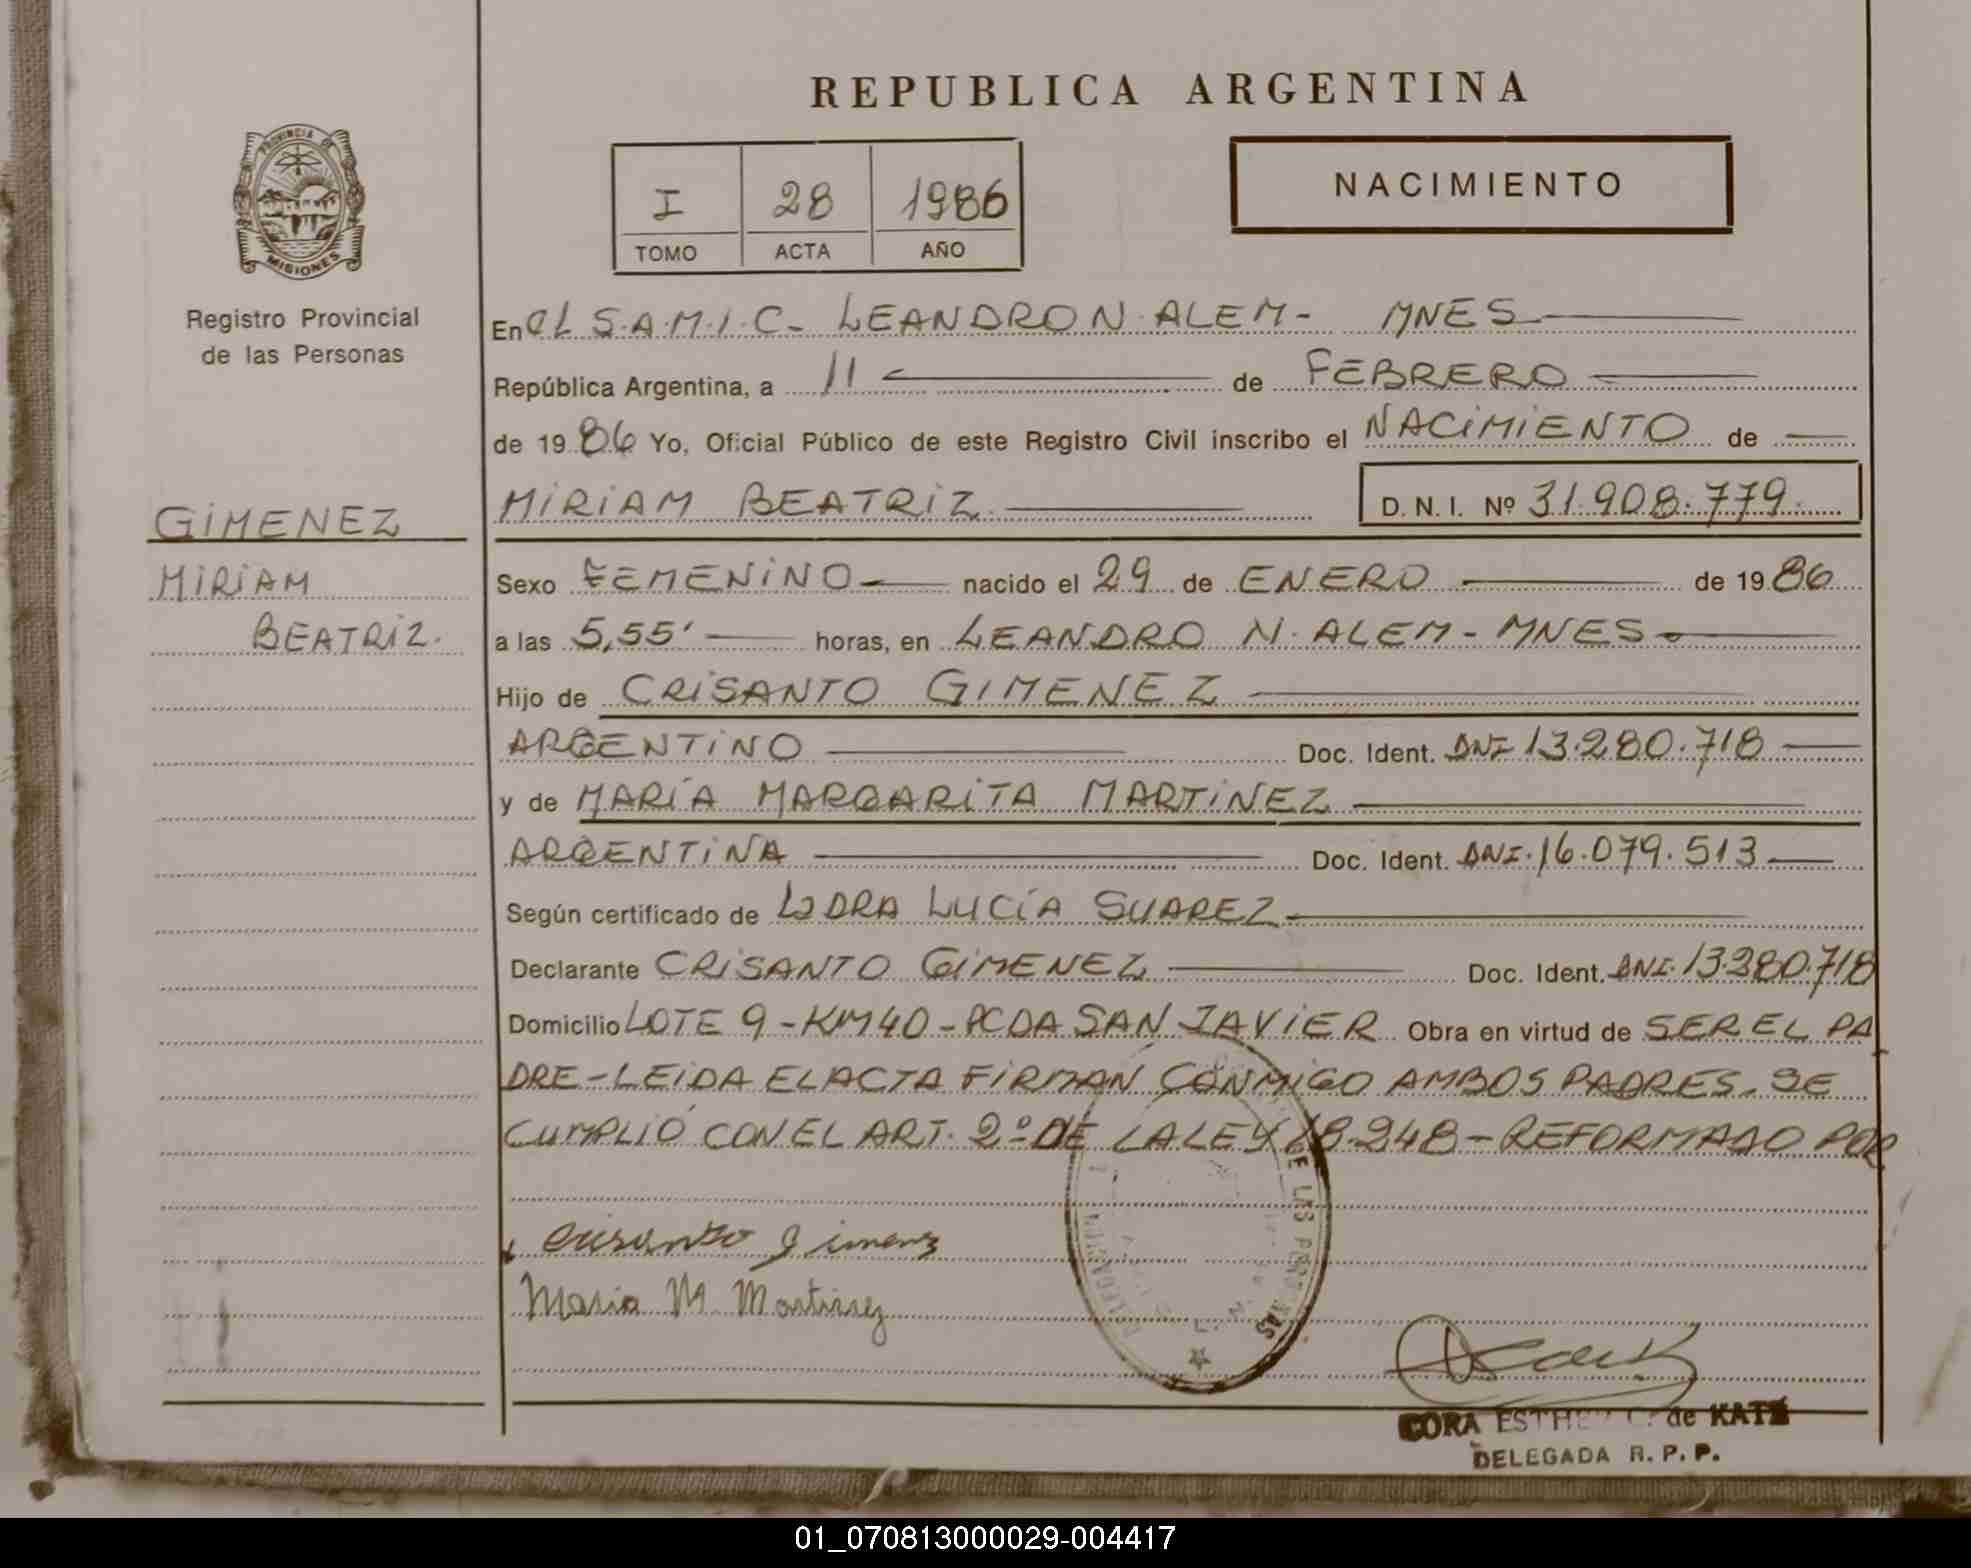 REPUBLICA ARGENTINA
PROVINCIA DE
MISIONES
Registro Provincial
de las Personas
I 28 1986
TOMO ACTA AÑO
NACIMIENTO
En el S.A.M.I.C. LEANDRO N. ALEM - MNES
República Argentina, a 11 de FEBRERO
de 1986 Yo, Oficial Público de este Registro Civil inscribo el NACIMIENTO de
GIMENEZ
MIRIAM
BEATRIZ.
MIRIAM BEATRIZ. D. N. I. Nº 31.908.779.
Sexo FEMENINO nacido el 29 de ENERO de 1986
a las 5,55' horas, en LEANDRO N. ALEM - MNES
Hijo de CRISANTO GIMENEZ
ARGENTINO Doc. Ident. DNI 13.280.718
y de MARÍA MARGARITA MARTINEZ
ARGENTINA Doc. Ident. DNI. 16.079.513
Según certificado de LA DRA LUCÍA SUAREZ
Declarante CRISANTO GIMENEZ Doc. Ident. DNI. 13.280.718
Domicilio LOTE 9 - KM 40 - PCDA SAN JAVIER Obra en virtud de SER EL PA
DRE - LEIDA EL ACTA FIRMAN CONMIGO AMBOS PADRES. SE
CUMPLIÓ CON EL ART. 2º DE LA LEY 18.248 - REFORMADO POR
Crisanto Gimenez
Maria M. Martinez
DE LAS PERSONAS
CORA ESTHER C. de KATZ
DELEGADA R. P. P.
01_070813000029-004417